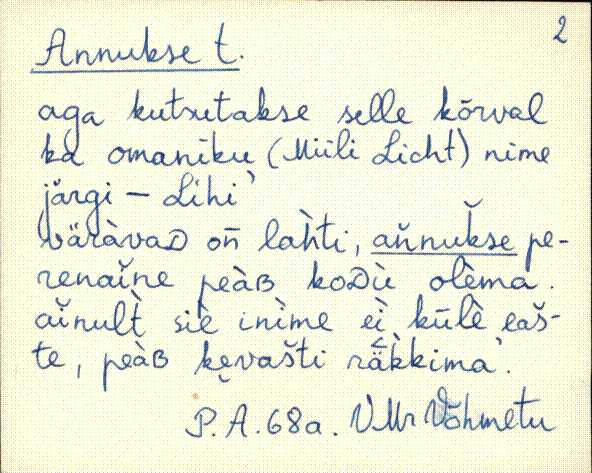 2
Annukse t.
aga kutsutakse selle kõrval
ka omaniku (Miili Licht) nime
järgi – Lihi`
väràvaD on̄ lah̀ti, an̆nuk̆se pe-
renaĭne peàB koDùì olèma.
aĭnult̀ siè inìme eì kūlè eaš-
te, peàB kęvašti rä̀kkima`.
P.A. 68a. VMr Võhmetu